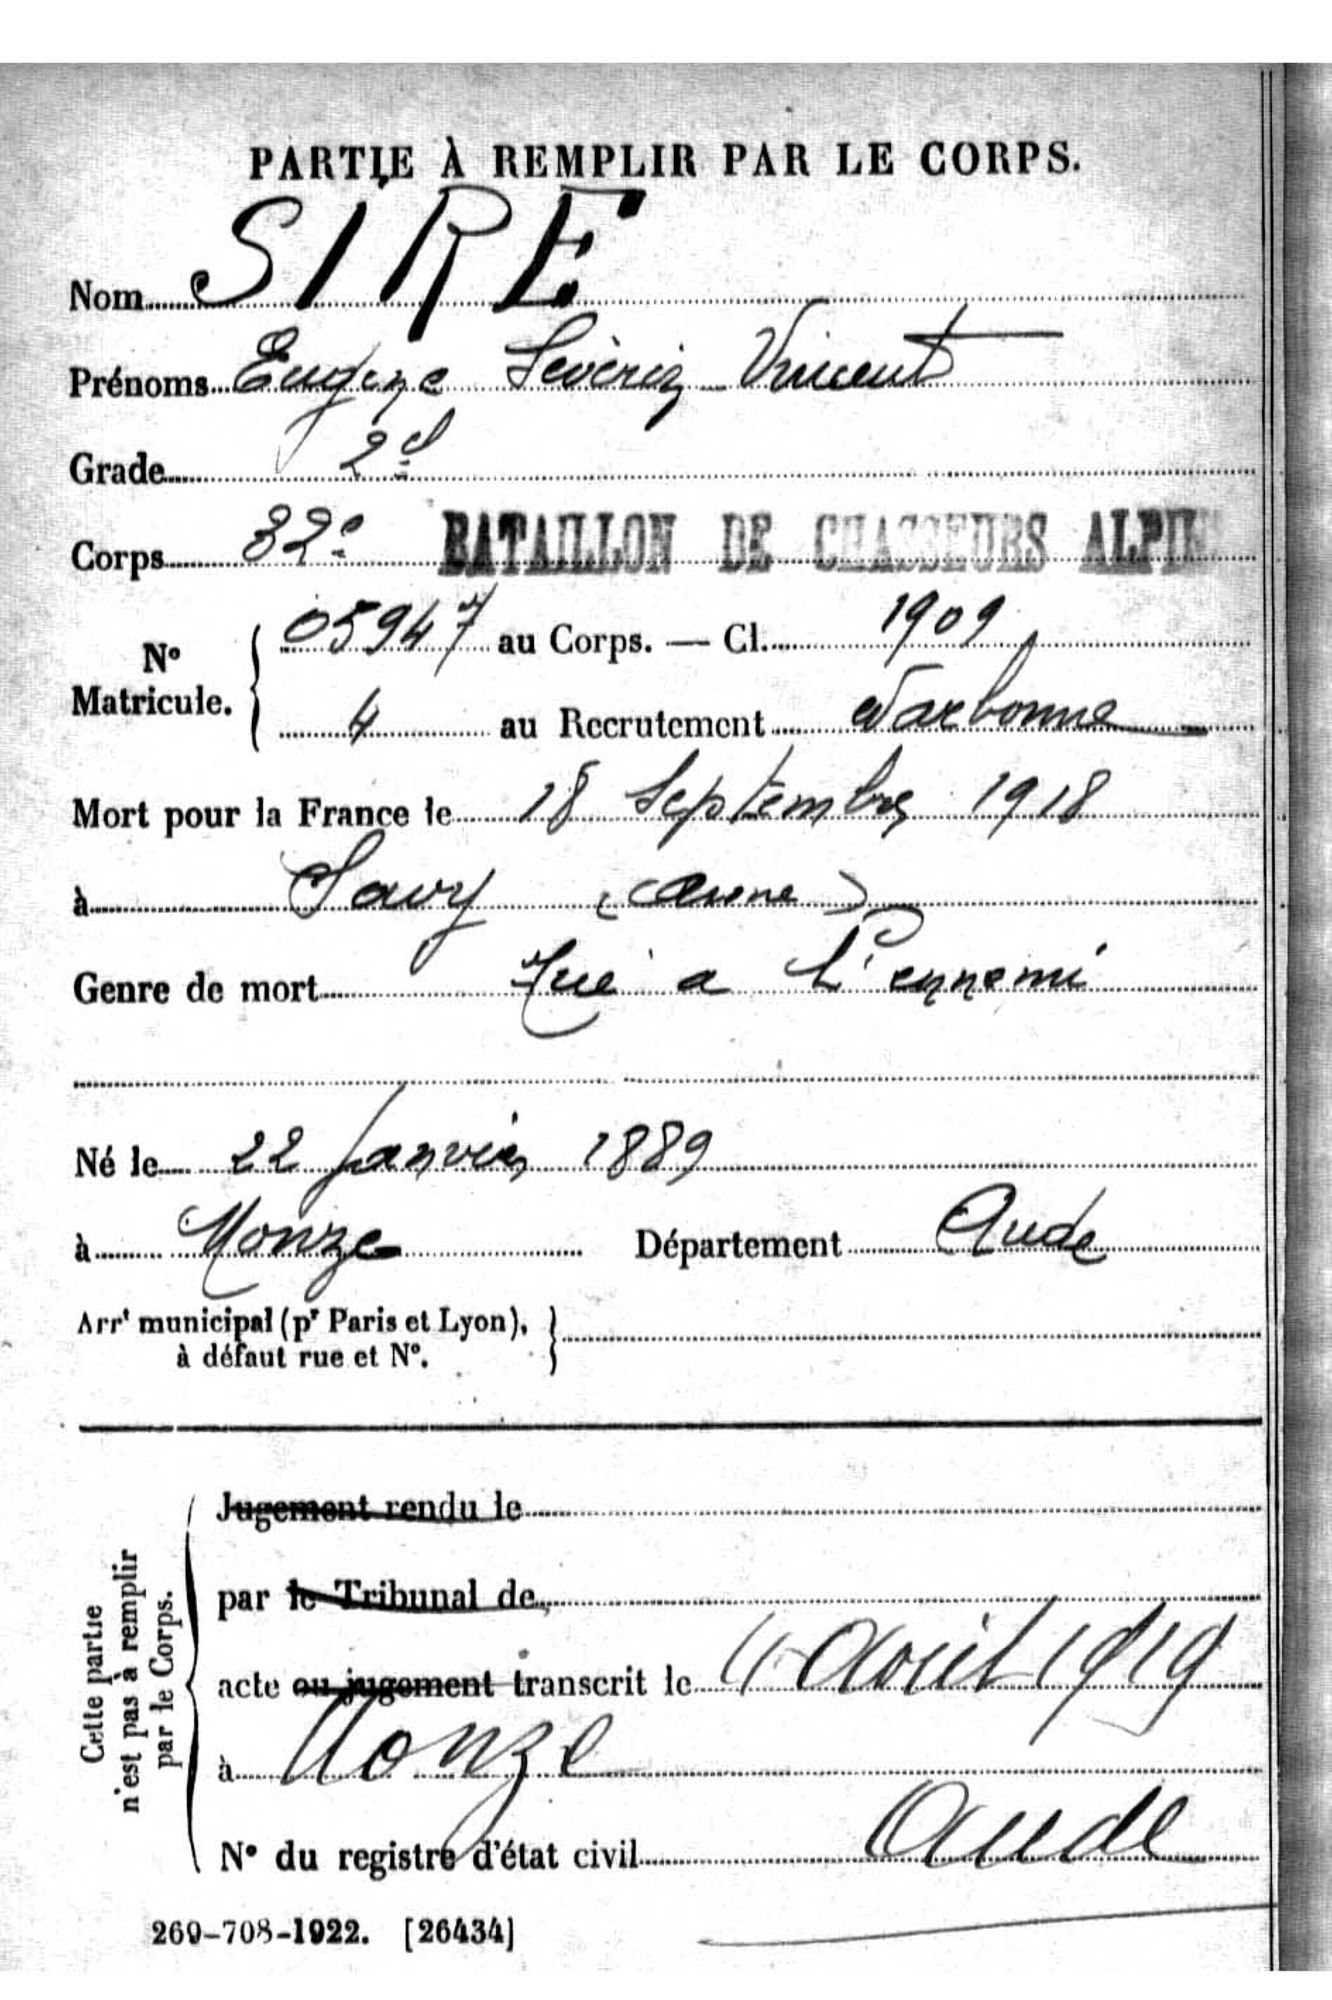 PARTIE À REMPLIR PAR LE CORPS.
Nom SIRE
Prénoms Eugène Sévérin Vincent
Grade 2e
Corps 32e BATAILLON DE CHASSEURS ALPINS
N° Matricule. 05947 au Corps. — Cl. 1909
4 au Recrutement Narbonne
Mort pour la France le 18 Septembre 1918
à Savy (Aisne)
Genre de mort Tué a l'ennemi
Né le 22 Janvier 1889
à Monze Département Aude
Arrt municipal (pr Paris et Lyon),
à défaut rue et N°.
Cette partie
n'est pas à remplir
par le Corps.
Jugement rendu le
par le Tribunal de
acte ou jugement transcrit le 4 Avril 1919
à Monze
N° du registre d'état civil Aude
269-708-1922. [26434]